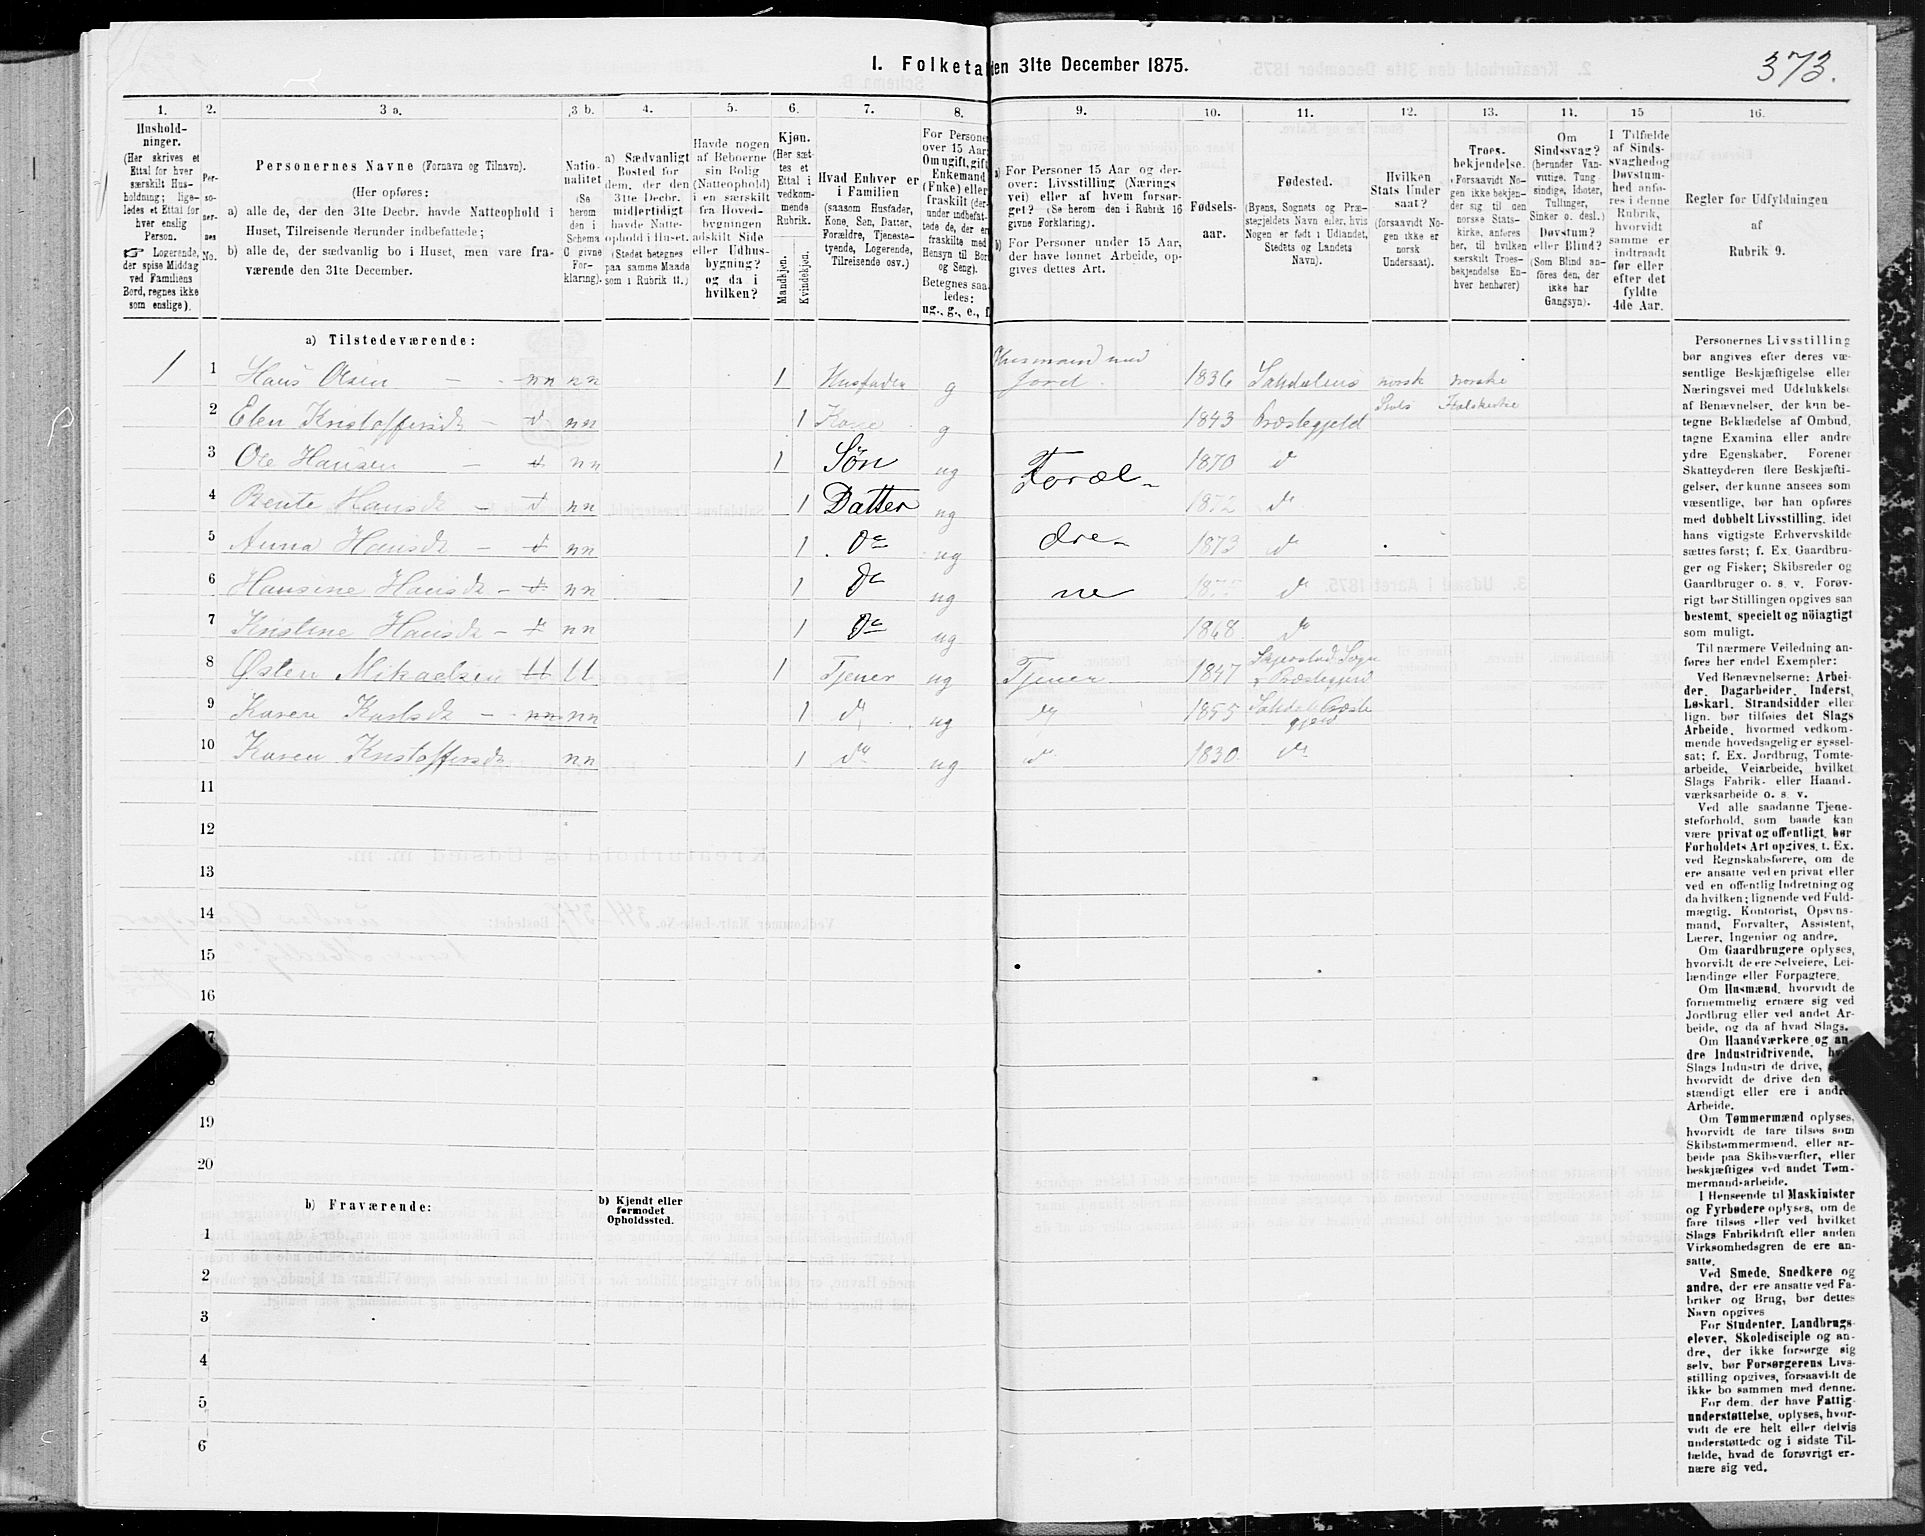 I. Folketal den 31te December 1875.
373.
1. 2. 3 a. 3 b. 4. 5. 6. 7. 8. 9. 10. 11. 12. 13. 14. 15 16.
Hushold-
ninger.
(Her skrives et
Ettal for hver
særskilt Hus-
holdning; lige-
ledes et Ettal for
hver enslig
Person.
☞ Logerende,
der spise Middag
ved Familiens
Bord, regnes ikke
som enslige).
Per-
so-
ner-
nes
No.
Personernes Navne (Fornavn og Tilnavn).
(Her opføres:
a) alle de, der den 31te Decbr. havde Natteophold i
Huset, Tilreisende derunder indbefattede;
b) alle de, der sædvanlig bo i Huset, men vare fra-
værende den 31te December.
Natio-
nalitet
(Se
herom
den i
Schema
C givne
For-
klaring).
a) Sædvanligt
Bosted for
dem, der den
31te Decbr.
midlertidigt
havde Natte-
ophold i Huset.
(Stedet betegnes
paa samme Maade
som i Rubrik 11.)
Havde nogen
af Beboerne
sin Bolig
(Natteophold)
i en særskilt
fra Hoved-
bygningen
adskilt Side
eller Udhus-
bygning?
og da i
hvilken?
Kjøn.
(Her sæt-
tes et
Ettal i
vedkom-
mende
Rubrik.
Mandkjøn.
Kvindekjøn.
Hvad Enhver er
i Familien
(saasom Husfader,
Kone, Søn, Datter,
Forældre, Tjeneste-
tyende, Logerende,
Tilreisende osv.)
For Personer
over 15 Aar:
Om ugift, gift,
Enkemand
(Enke) eller
fraskilt (der-
under indbefat-
tede de, der ere
fraskilte med
Hensyn til Bord
og Seng).
Betegnes saa-
ledes:
ug., g., e., f.
a) For Personer 15 Aar og der-
over: Livsstilling (Nærings-
vei) eller af hvem forsør-
get? (Se herom den i Rubrik 16
givne Forklaring).
b) For Personer under 15 Aar,
der have lønnet Arbeide, op-
gives dettes Art.
Fødsels-
aar.
Fødested.
(Byens, Sognets og Præ-
stegjeldets Navn eller, hvis
Nogen er født i Udlandet,
Stedets og Landets
Navn).
Hvilken
Stats Under
saat?
(forsaavidt No-
gen ikke er
norsk
Undersaat).
Troes-
bekjendelse.
(Forsaavidt No-
gen ikke bekjen-
der sig til den
norske Stats-
kirke, anføres
her, til hvilken
særskilt Troes-
bekjendelse En-
hver henhører)
Om
Sindssvag?
(herunder Van-
vittige, Tung
sindige, Idioter,
Tullinger,
Sinker o. desl.)
Døvstum?
eller Blind?
(Som Blind an-
føres den, der
ikke har
Gangsyn).
I Tilfælde
af Sinds-
svaghed og
Døvstum-
hed anfø-
res i denne
Rubrik,
hvorvidt
samme er
indtraadt
før eller
efter det
fyldte
4de Aar.
Regler for Udfyldningen
af
Rubrik 9.
a) Tilstedeværende:
1 1 Hans Olsen - nn nn 1 Husfader g Husmand med Jord. 1836 Saltdalens norsk norske
2 Elen Kristoffersdt - d nn 1 Kone g 1843 Præstegjeld Stats Statskirke
3 Ole Hansen - d nn 1 Søn ug Foræl- 1870 d
4 Bente Hansdt - d nn 1 Datter ug 1872 do
5 Anna Hansdt - d nn 1 Do ug dre- 1873 d
6 Hansine Hansdt - d nn 1 Do ug ne 1875 do
7 Kristine Hansdt - d nn 1 Do ug 1868 do
8 Østen Mikaelsen U U 1 Tjener ug Tjener 1847 Skjerstad Sogn
& Præstegjeld
9 Karen Karlsdt - nn nn 1 d ug d 1855 Saltdal Præste
gjeld
10 Karen Kristoffersdt nn 1 do ug d 1830 do
11
12
13
14
15
16
17
19
20
b) Fraværende:
b) Kjendt eller
formodet
Opholdssted.
1
2
3
4
5
6
Personernes Livsstilling
bør angives efter deres væ-
sentlige Beskjæftigelse eller
Næringsvei med Udelukkelse
af Benævnelser, der kun be-
tegne Beklædelse af Ombud,
tagne Examina eller andre
ydre Egenskaber. Forener
Skatteyderen flere Beskjæfti-
gelser, der kunne ansees som
væsentlige, bør han opføres
med dobbelt Livsstilling, idet
hans vigtigste Erhvervskilde
sættes først; f. Ex. Gaardbru-
ger og Fisker; Skibsreder og
Gaardbruger o. s. v. Forøv-
rigt bør Stillingen opgives saa
bestemt, specielt og nøiagtigt
som muligt.
Til nærmere Veiledning an-
føres her endel Exempler:
Ved Benævnelserne: Arbei-
der, Dagarbeider, Inderst,
Løskarl, Strandsidder eller
lign. bør tilføies det Slags
Arbeide, hvormed vedkom-
mende hovedsagelig er syssel-
sat; f. Ex. Jordbrug, Tomte-
arbeide, Veiarbeide, hvilket
Slags Fabrik- eller Haand-
værksarbeide o. s. v.
Ved alle saadanne Tjene-
steforhold, som baade kan
være privat og offentligt, bør
Forholdets Art opgives, t. Ex.
ved Regnskabsførere, om de
ere ansatte ved en privat eller
ved en offentlig Indretning og
da hvilken; lignende ved Fuld-
mægtig, Kontorist, Opsyns-
mand, Forvalter, Assistent,
Lærer, Ingeniør og andre.
Om Gaardbrugere oplyses,
hvorvidt de ere Selveiere, Lei-
lændinge eller Forpagtere.
Om Husmænd, hvorvidt de
fornemmelig ernære sig ved
Jordbrug eller ved andet Ar-
beide, og da af hvad Slags.
Om Haandværkere og an-
dre Industridrivende,
Slags Industri de drive,
hvorvidt de drive den
stændigt eller ere i andres
Arbeide.
Om Tømmermænd oplyses,
hvorvidt de fare tilsøs som
Skibstømmermænd, eller ar-
beide paa Skibsværfter, eller
beskjæftiges ved andet Tøm-
mermandsarbeide.
I Henseende til Maskinister
og Fyrbødere oplyses, om de
fare tilsøs eller ved hvilket
Slags Fabrikdrift eller anden
Virksomhedsgren de ere an-
satte.
Ved Smede, Snedkere og
andre, der ere ansatte ved Fa-
briker og Brug, bør dettes
Navn opgives
For Studenter, Landbrugs-
elever, Skoledisciple og an-
dre, der ikke forsørge sig
selv, bør Forsørgerens Livs-
stilling opgives, forsaavidt de
ikke bo sammen med denne.
For dem, der have Fattig-
understøttelse, oplyses, hvor-
vidt de ere helt eller delvis
understøttede og i sidste Til-
fælde, hvad de forøvrigt er-
nære sig ved.